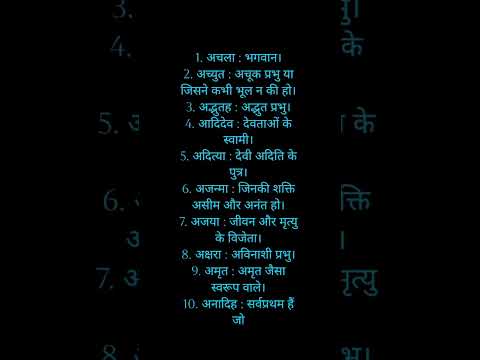 1. अचला : भगवान।
2. अच्युत : अचूक प्रभु या
जिसने कभी भूल न की हो।
3. अद्भुतह : अद्भुत प्रभु।
4. आदिदेव : देवताओं के
स्वामी।
5. अदित्या : देवी अदिति के
पुत्र।
6. अजन्मा : जिनकी शक्ति
असीम और अनंत हो।
7. अजया : जीवन और मृत्यु
के विजेता।
8. अक्षरा : अविनाशी प्रभु।
9. अमृत : अमृत जैसा
स्वरूप वाले।
10. अनादिह : सर्वप्रथम हैं
जो